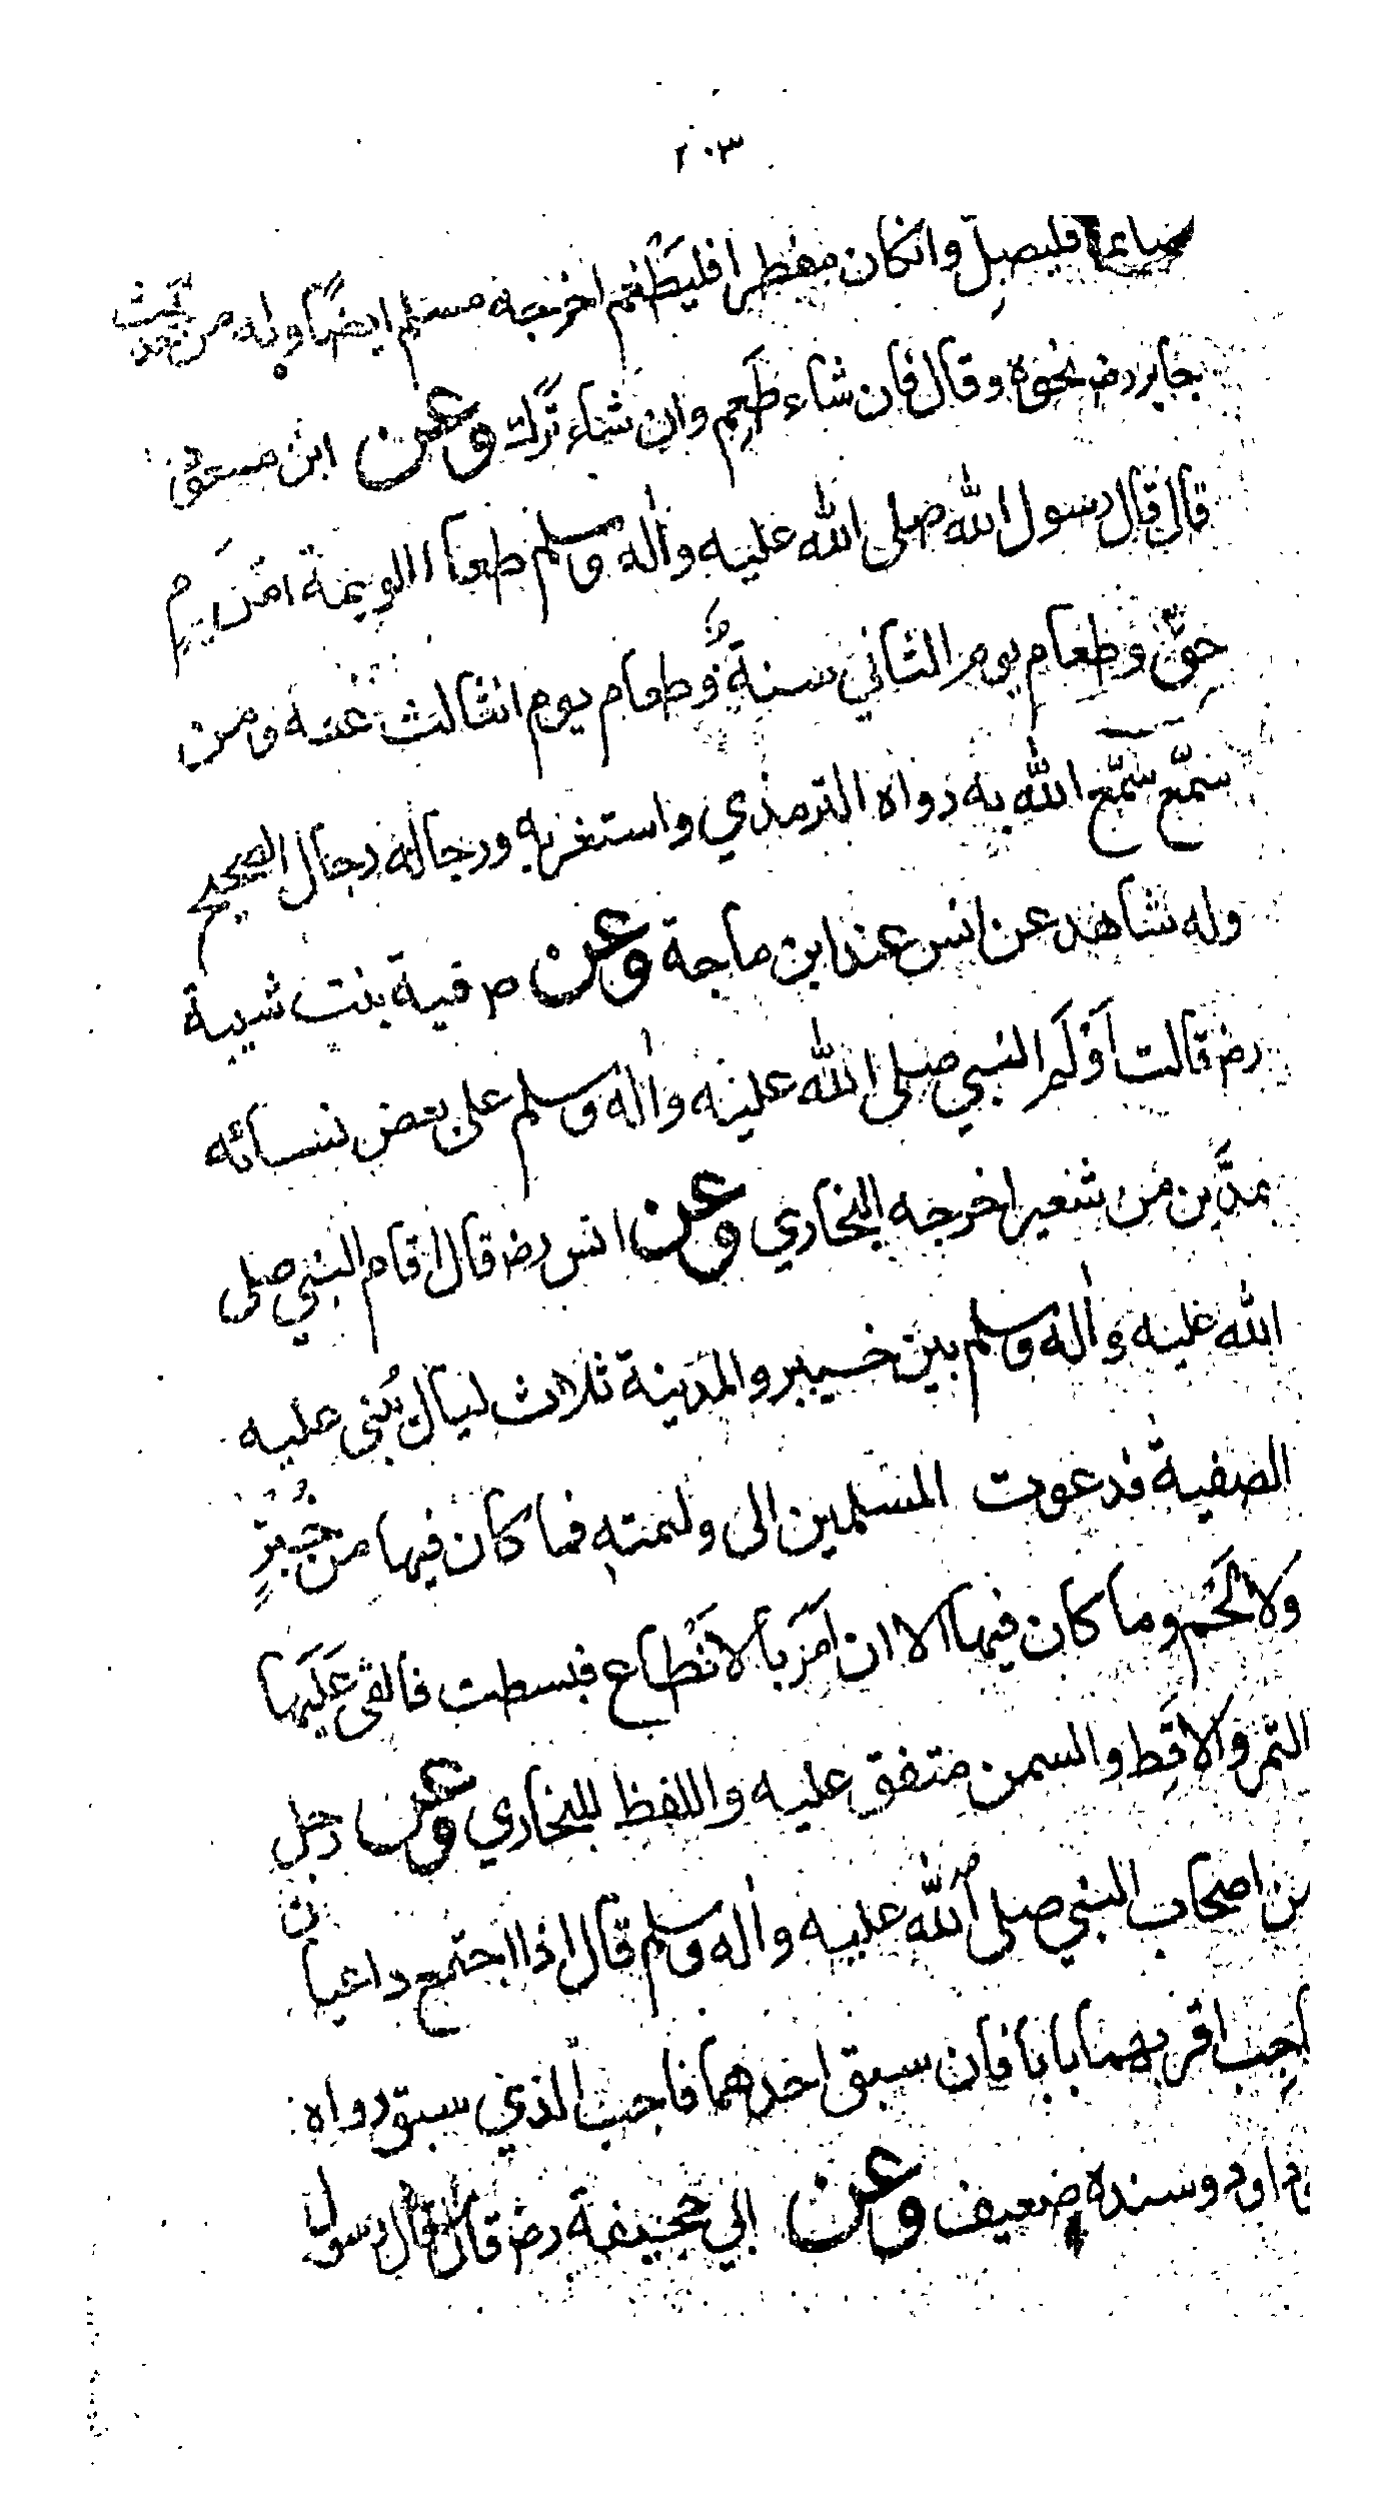 ٢٠٣
صائما فليصل وانكان مفطرا فليطعم اخرجه مسلم ايضا وله من حديث
جابر رضہ نحوه وقال فان شاء طَعِم وان شاء ترك وعن ابن مسعود
قال قال رسول الله صلى الله عليه واٰله وسلم طعام الوليمة اول يوم
حقٌّ وطعام يوم الثاني سنةٌ وطعام يوم الثالث سمعة ومن
سمّع سمّع الله به رواه الترمذي واستغربه ورجاله رجال الصحيح
وله شاهد عن انس عند ابن ماجة وعن صفية بنت شيبة
رضہ قالت اَوْلَم النبي صلى الله عليه واٰله وسلم على بعض نسائه
بمدَّين من شعير اخرجه البخاري وعن انس رضہ قال اقام النبي صلى
الله عليه واٰله وسلم بين خيبر والمدينة ثلاث ليال يُبنى عليه
الصفية فدعوت المسلمين الى وليمته فما كان فيها من خُبزٍ
ولا لَحْم وما كان فيها الا ان اَمَرَ بالاَنْطاع فبسطت فالقى عَلَيها
التمر والاقِط والسمن متفق عليه واللفظ للبخاري وعن رجل
من اصحاب النبي صلى الله عليه واٰله وسلم قال اذا اجتمع داعيان
اَجِب اقربهما بابا فان سبق احدهما فاجب الذي سبق رواه
ابوداود وسنده ضعيف وعن ابي جحيفة رضہ قال قال رسول